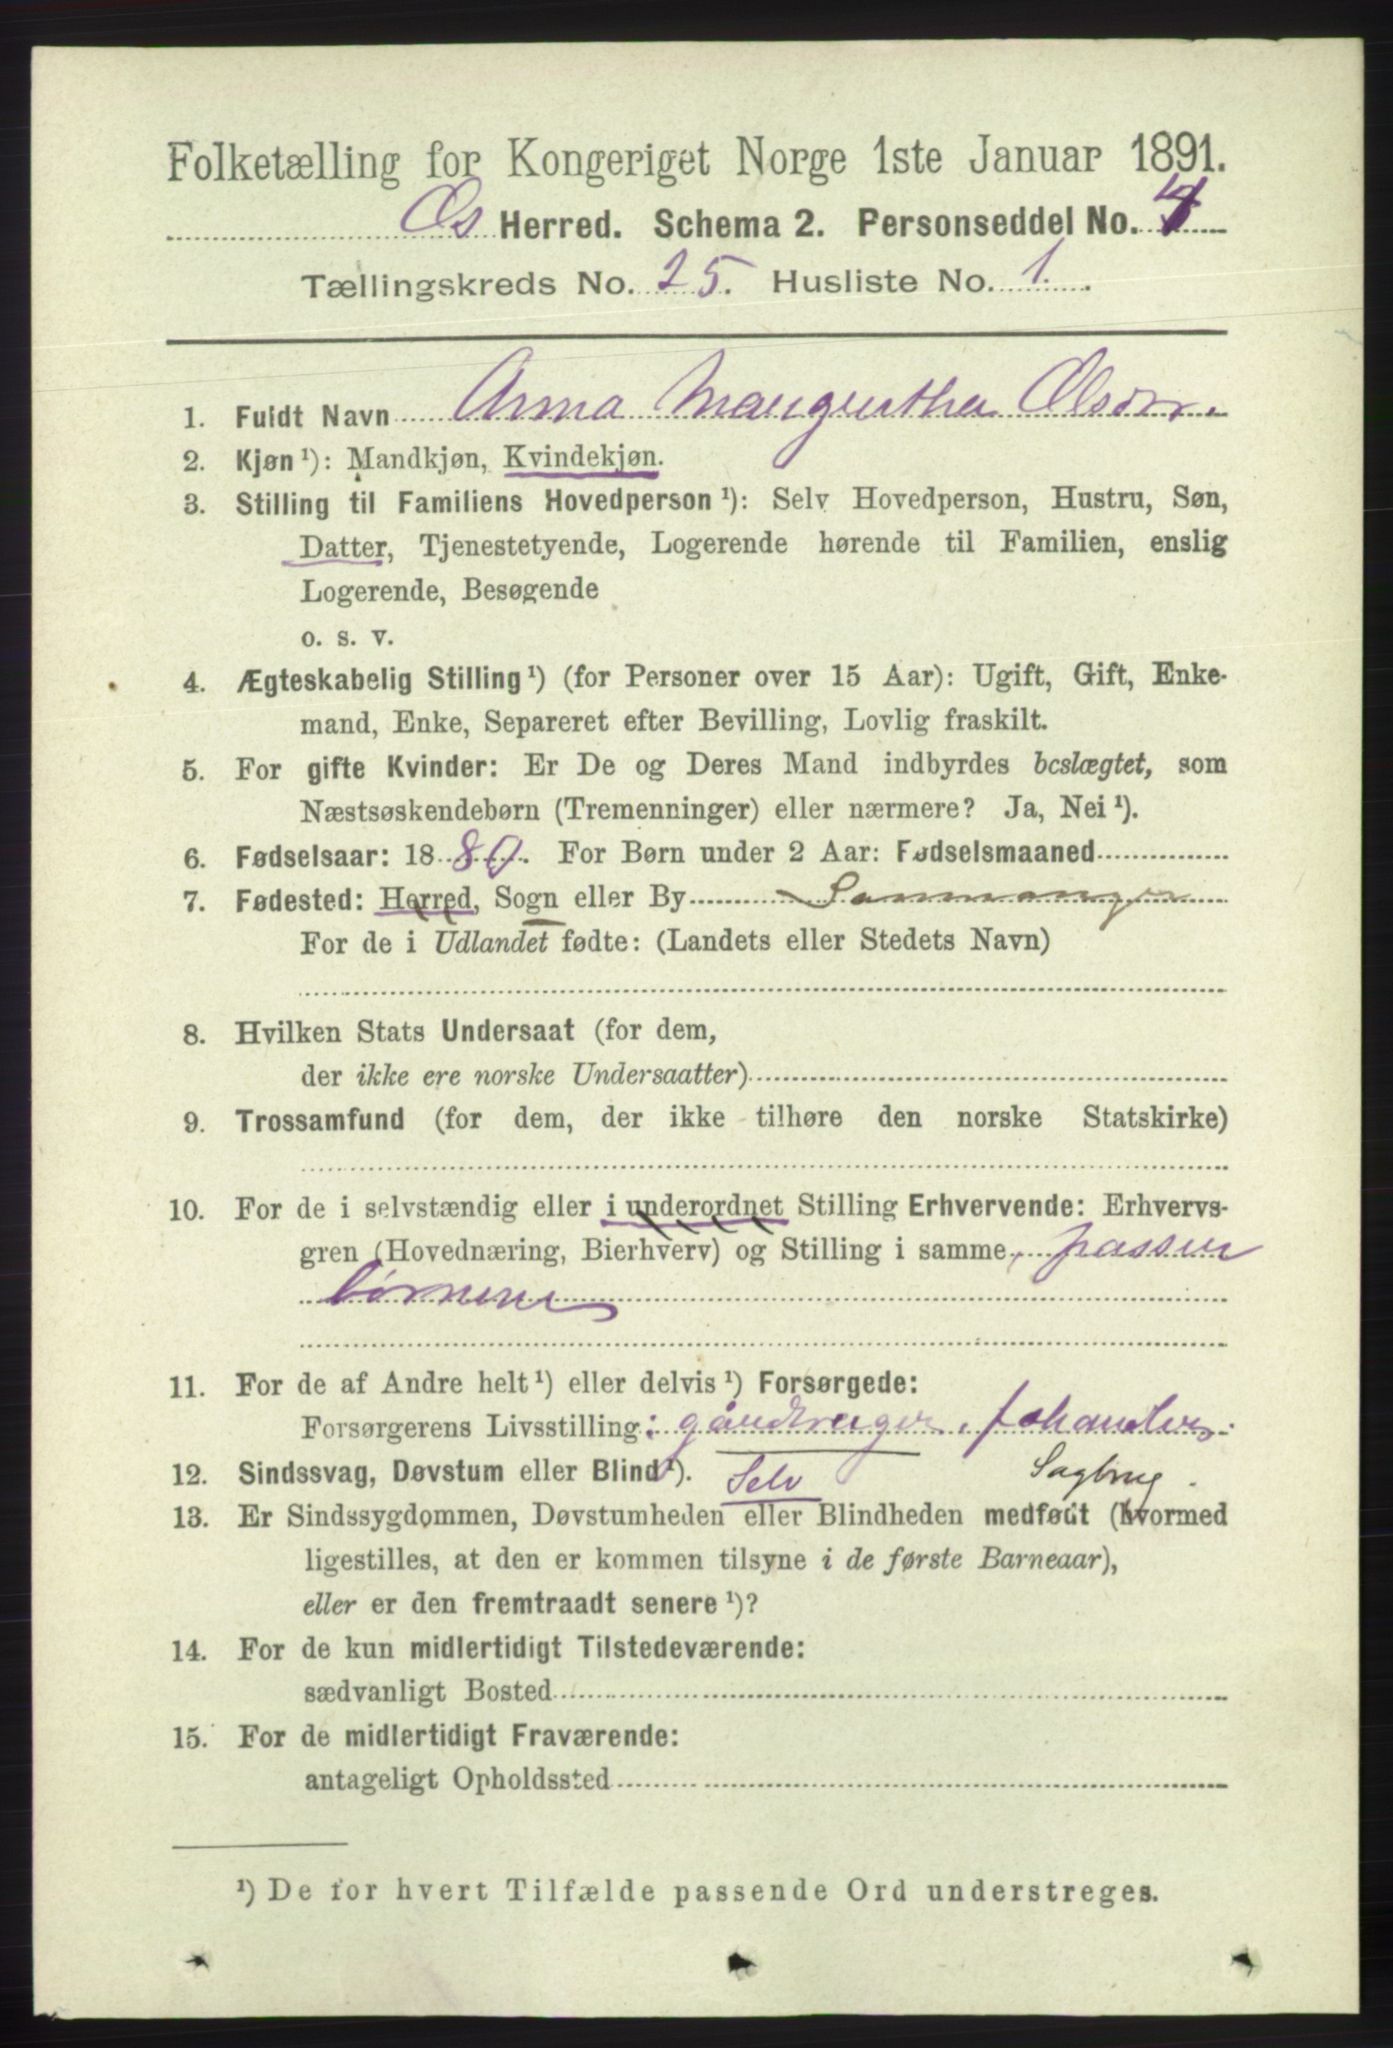 Folketælling for Kongeriget Norge 1ste Januar 1891.
Os Herred. Schema 2. Personseddel No. 4
Tællingskreds No. 25. Husliste No. 1.
1. Fuldt Navn Anna Margrethe Olsen.
2. Kjøn ¹): Mandkjøn, Kvindekjøn.
3. Stilling til Familiens Hovedperson ¹): Selv Hovedperson, Hustru, Søn,
Datter, Tjenestetyende, Logerende hørende til Familien, enslig
Logerende, Besøgende
o. s. v.
4. Ægteskabelig Stilling ¹) (for Personer over 15 Aar): Ugift, Gift, Enke-
mand, Enke, Separeret efter Bevilling, Lovlig fraskilt.
5. For gifte Kvinder: Er De og Deres Mand indbyrdes beslægtet, som
Næstsøskendebørn (Tremenninger) eller nærmere? Ja, Nei ¹).
6. Fødselsaar: 1880. For Børn under 2 Aar: Fødselsmaaned
7. Fødested: Herred, Sogn eller By Sammanger
For de i Udlandet fødte: (Landets eller Stedets Navn)
8. Hvilken Stats Undersaat (for dem,
der ikke ere norske Undersaatter)
9. Trossamfund (for dem, der ikke tilhøre den norske Statskirke)
10. For de i selvstændig eller i underordnet Stilling Erhvervende: Erhvervs-
gren (Hovednæring, Bierhverv) og Stilling i samme, passer
børnene
11. For de af Andre helt ¹) eller delvis ¹) Forsørgede:
Forsørgerens Livsstilling: gårdbruger,
12. Sindssvag, Døvstum eller Blind ¹). Selv Sagbrug.
13. Er Sindssygdommen, Døvstumheden eller Blindheden medfødt (hvormed
ligestilles, at den er kommen tilsyne i de første Barneaar),
eller er den fremtraadt senere ¹)?
14. For de kun midlertidigt Tilstedeværende:
sædvanligt Bosted
15. For de midlertidigt Fraværende:
antageligt Opholdssted
¹) De for hvert Tilfælde passende Ord understreges.